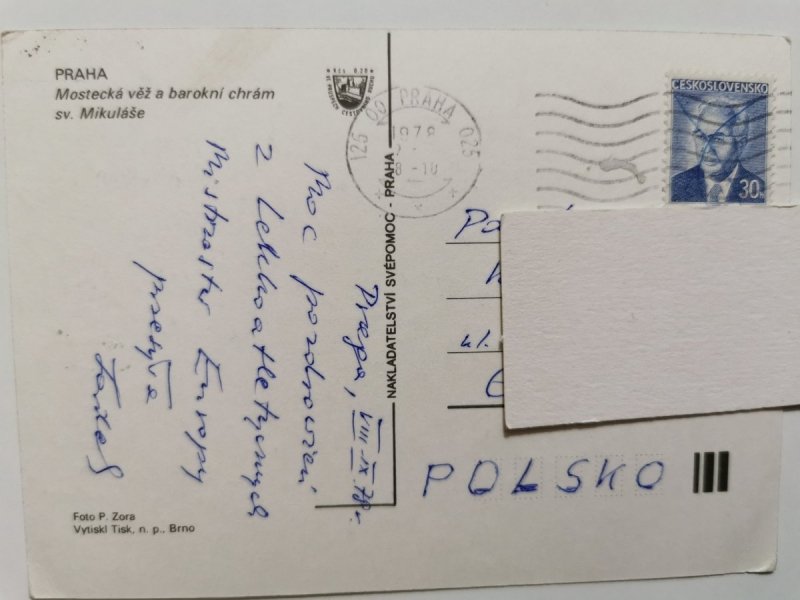 PRAHA
Mostecká věž a barokní chrám
sv. Mikuláše
Kčs 0.20
125 00 PRAHA 025
1978
8 -10
ČESKOSLOVENSKO
30
NAKLADATELSTVÍ SVÉPOMOC - PRAHA
Praga, VIII-IX.78r.
Moc pozdrowień
z Lekkoatletycznych
Mistrzostw Europy
przesyła
ul.
POLSKO
Foto P. Zora
Vytiskl Tisk, n. p., Brno